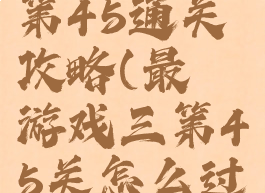 第45通关
攻略(最
游戏三第4
5关怎么过